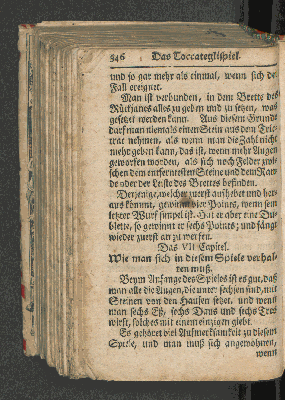 346 Das Toccateglispiel.
und so gar mehr als einmal, wenn sich der
Fall ereignet.
Man ist verbunden, in dem Brette des
Rückjanes alles zu geben und zu setzen, was
gesetzt werden kann. Aus diesem Grunde
darf man niemals einen Stein aus dem Tric-
trac nehmen, als wenn man die Zahl nicht
mehr geben kann, das ist, wenn mehr Augen
geworfen worden, als sich noch Felder zwi-
schen dem entferntesten Steine und dem Ran-
de oder der Leiste des Brettes befinden.
Derjenige, welcher zuerst aufhebet und her-
aus kömmt, gewinnt vier Points, wenn sein
letzter Wurf simpel ist. Hat er aber eine Du-
blette, so gewinnt er sechs Points; und fängt
wieder zuerst an zu werfen.
Das VII Capitel.
Wie man sich in diesem Spiele verhal-
ten muß.
Beym Anfange des Spieles ist es gut, daß
man alle die Augen, die unter sechsen sind, mit
Steinen von den Haufen setzet, und wenn
man sechs Eß, sechs Daus und sechs Tres
wirft, solches mit einem einzigen giebt.
Es gehöret viel Aufmerksamkeit zu diesem
Spiele, und man muß sich angewöhnen,
wenn